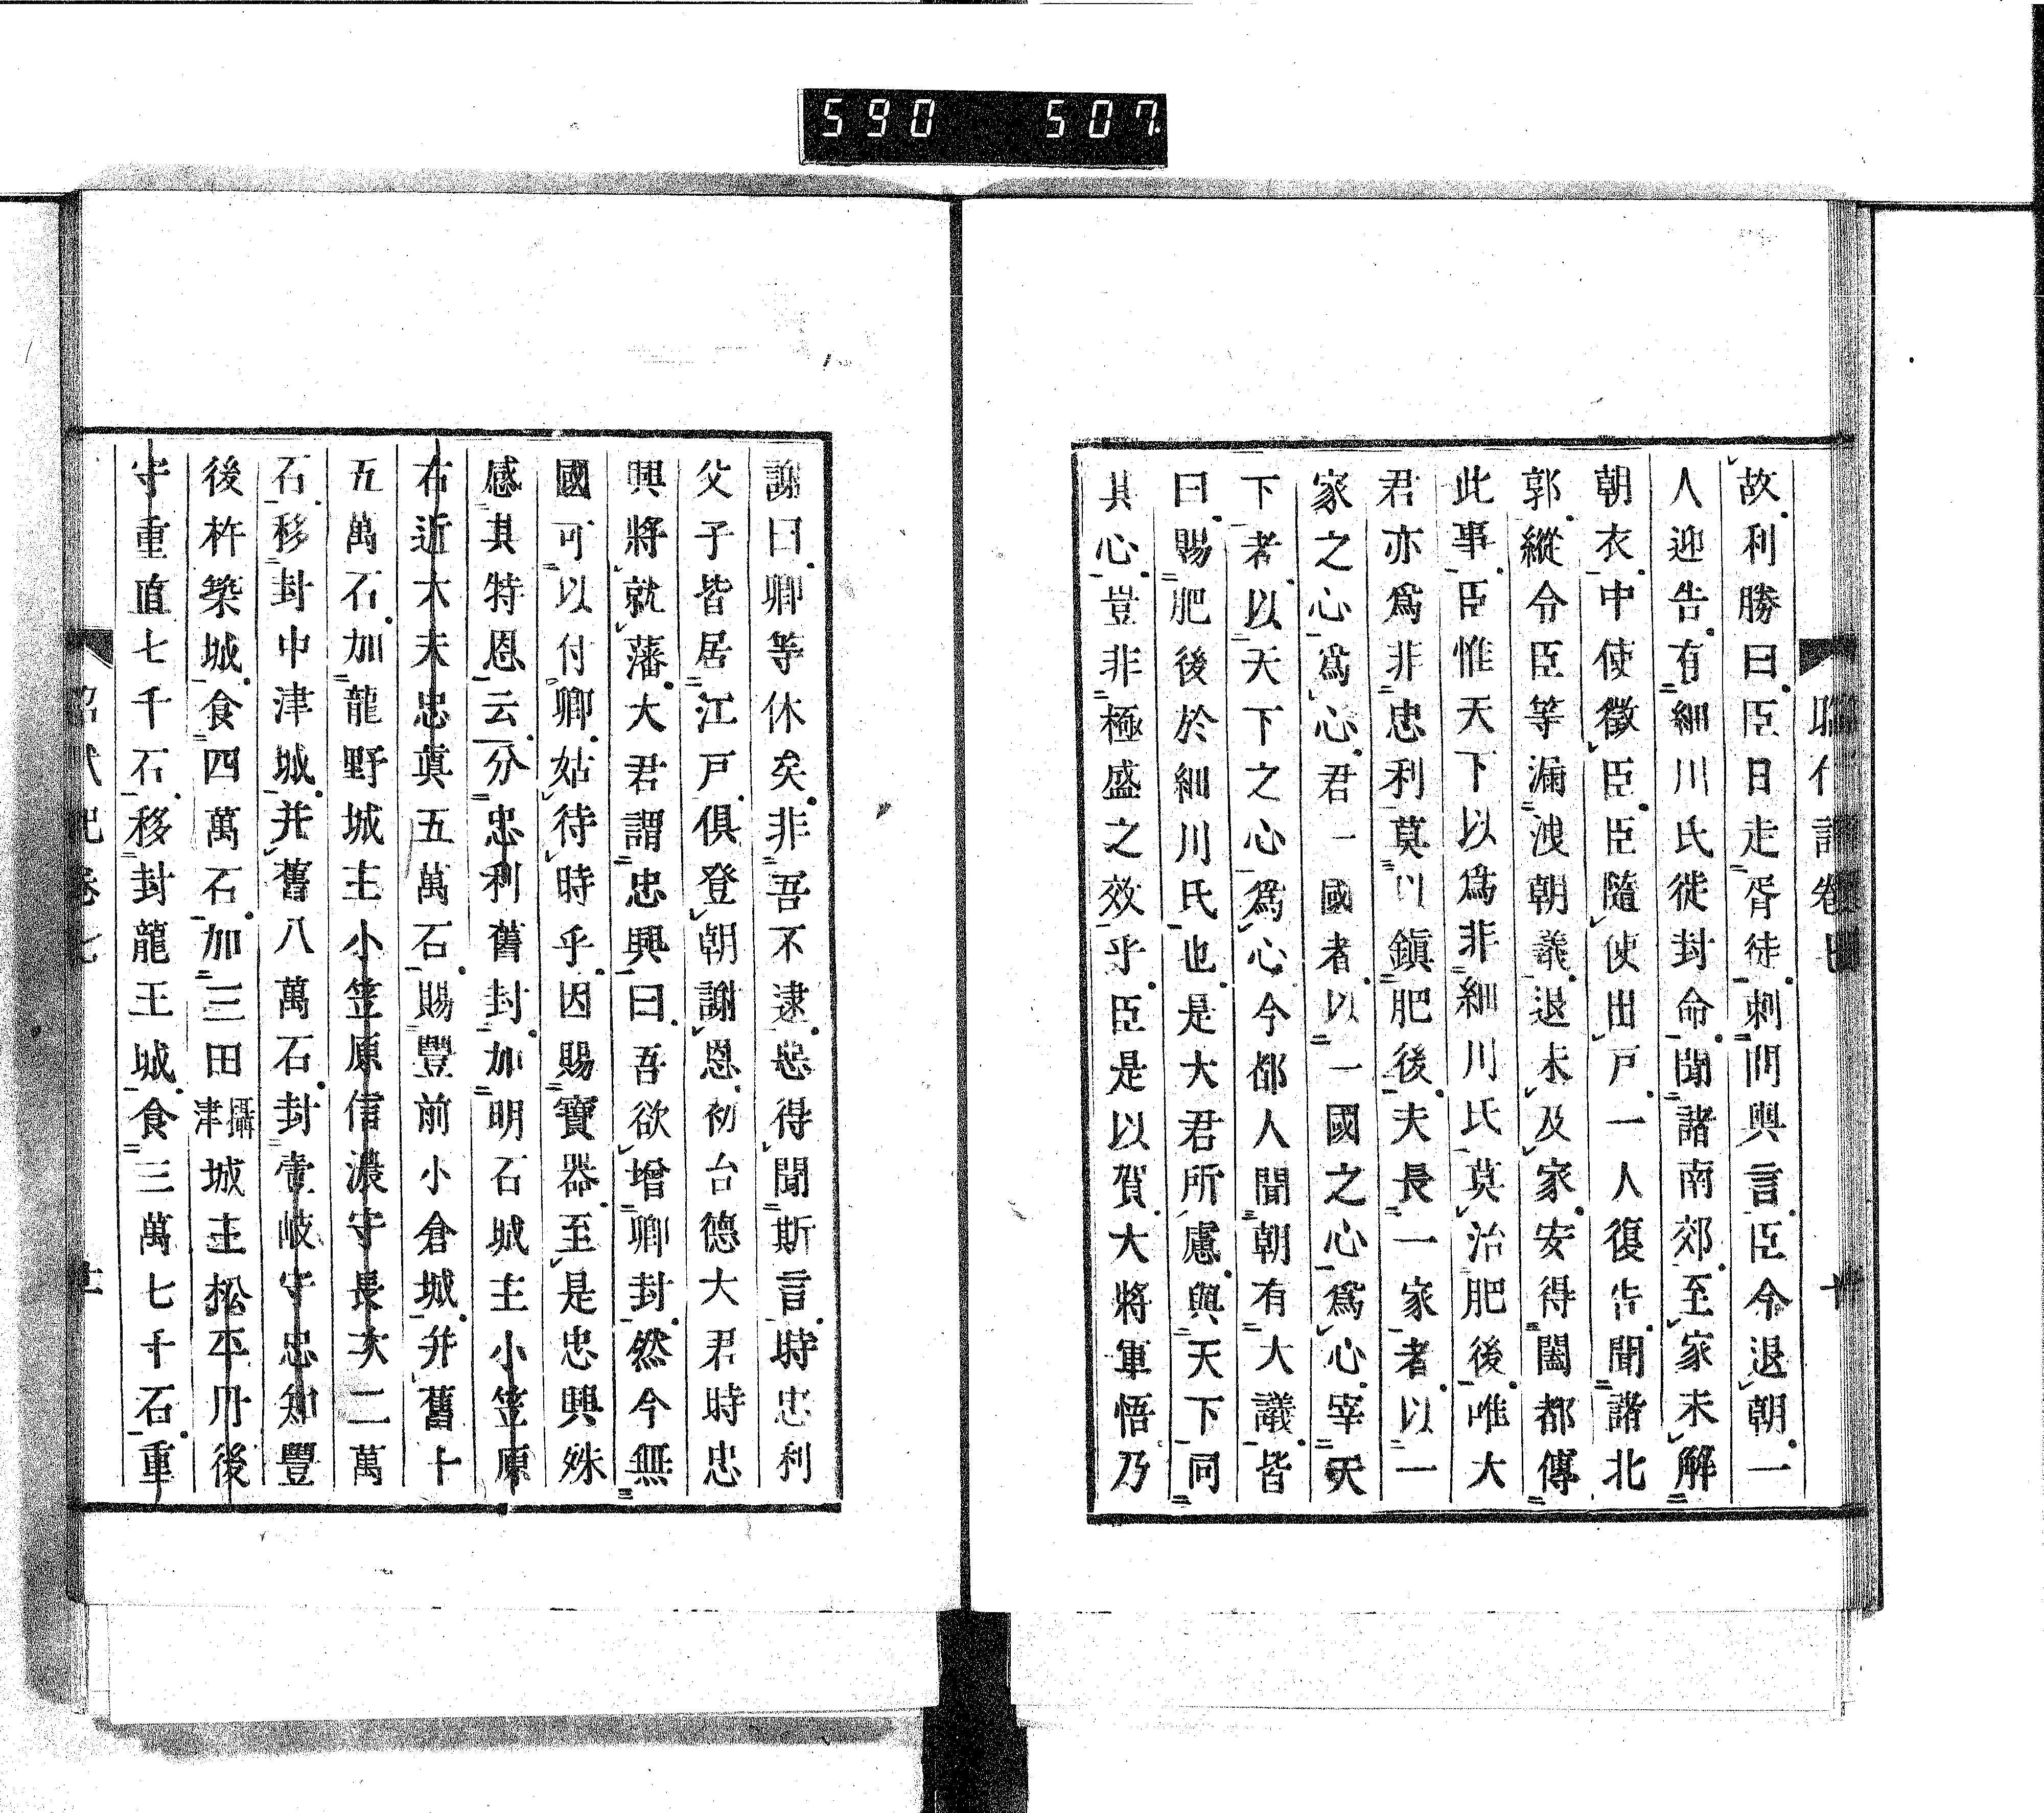 590 507
故利勝曰臣日走胥徒刺問輿言臣令退朝一
人迎告有細川氏徙封命聞諸南郊至家未解
朝衣中使徵臣臣隨使出戸一人復告聞諸北
郭縱令臣等漏洩朝義退未及家安得闔都傳
此事臣惟天下以爲非細川氏莫治肥後唯大
君亦爲非忠利莫以鎭肥後夫長一家者以一
家之心爲心君一國者以一國之心爲心宰天
下者以天下之心爲心今都人聞朝有大議皆
曰賜肥後於細川氏也是大君所慮與天下同
其心豈非極盛之效乎臣是以賀大將軍悟乃
謝曰卿等休矣非吾不逮惡得聞斯言時忠利
父子皆居江戸俱登朝謝恩初台德大君時忠
興將就藩大君謂忠興曰吾欲增卿封然今無
國可以付卿姑待時乎因賜寶器至是忠興殊
感其特恩云分忠利舊封加明石城主小笠原
右近大夫忠眞五萬石賜豐前小倉城并舊十
五萬石加龍野城主小笠原信濃守長次二萬
石移封中津城并舊八萬石封壹岐守忠知豐
後杵築城食四萬石加三田攝津城主松平丹後
守重直七千石移封龍王城食三萬七千石重